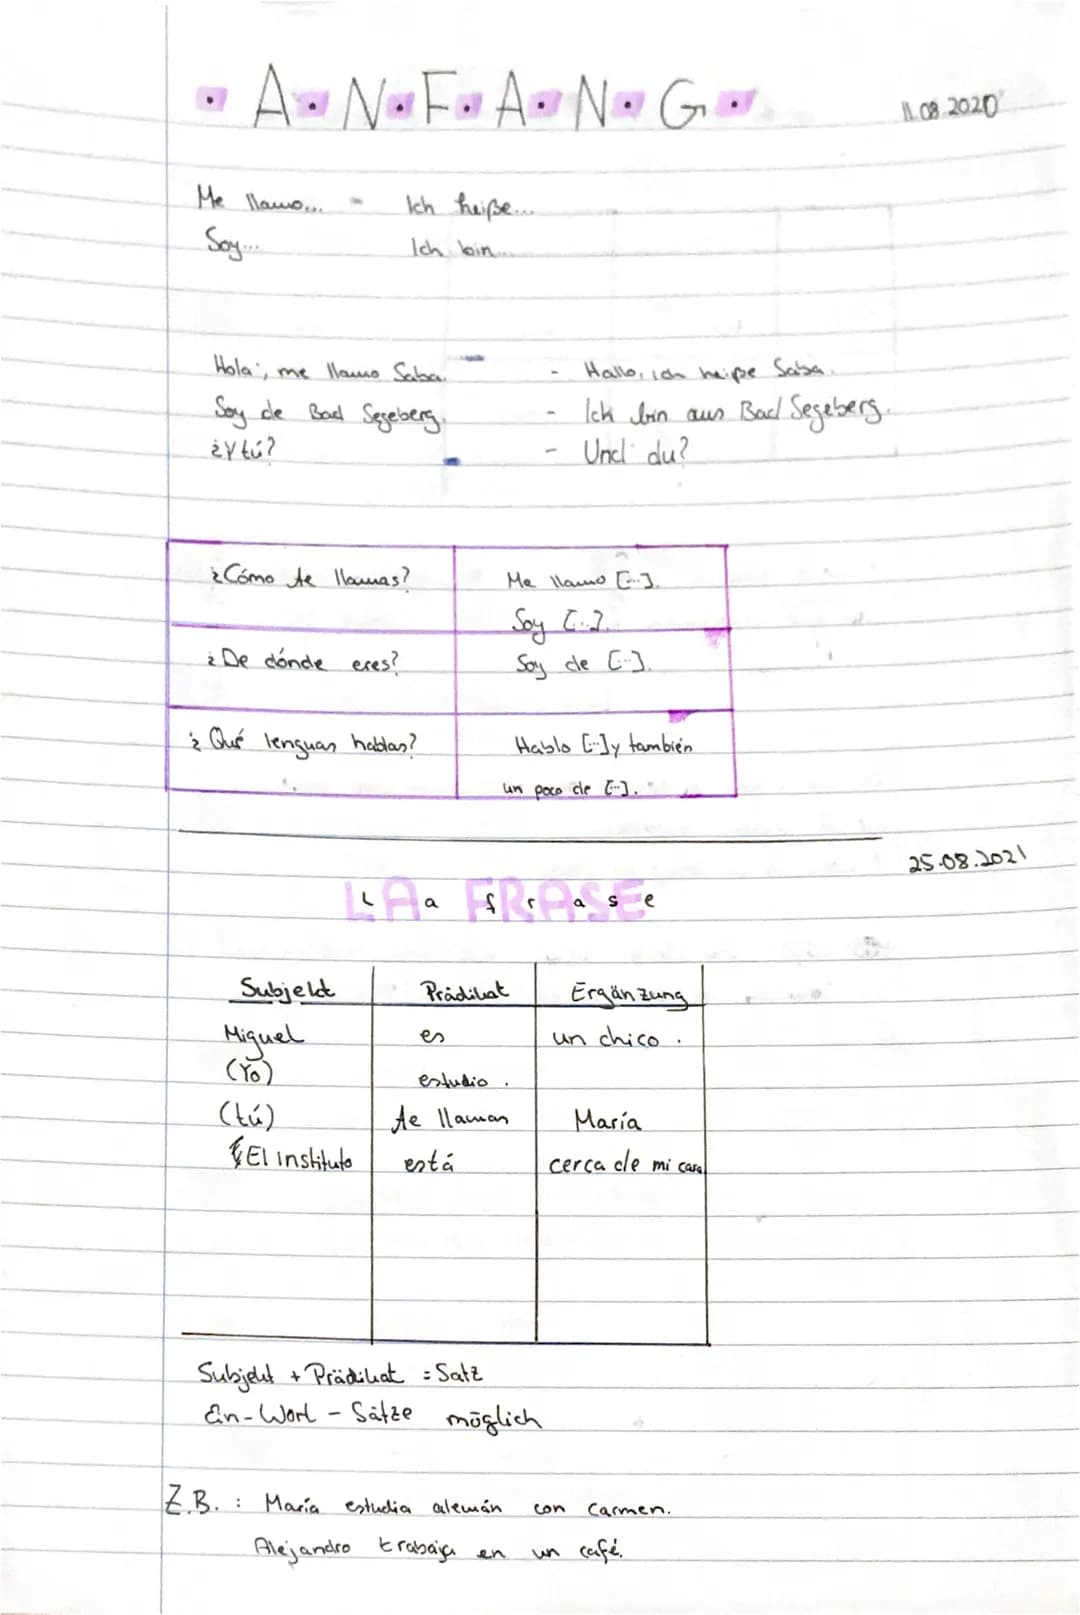 A.N.F.A.N.G.
11.08.2020
Me llamo... = Ich heiße...
Soy... Ich bin...
Hola, me llamo Saba. - Hallo, ich heiße Saba.
Soy de Bad Segeberg. - Ich bin aus Bad Segeberg.
¿Y tú? - Und du?
¿Cómo te llamas? Me llamo [...].
Soy [...].
¿De dónde eres? Soy de [...].
¿Qué lenguas hablas? Hablo [...] y también
un poco de [...].
25.08.2021
La frase
Subjekt Prädikat Ergänzung
Miguel es un chico.
(Yo) estudio.
(tú) te llamas María
El instituto está cerca de mi casa
Subjekt + Prädikat = Satz
Ein-Wort-Sätze möglich
Z.B.: María estudia alemán con Carmen.
Alejandro trabaja en un café.